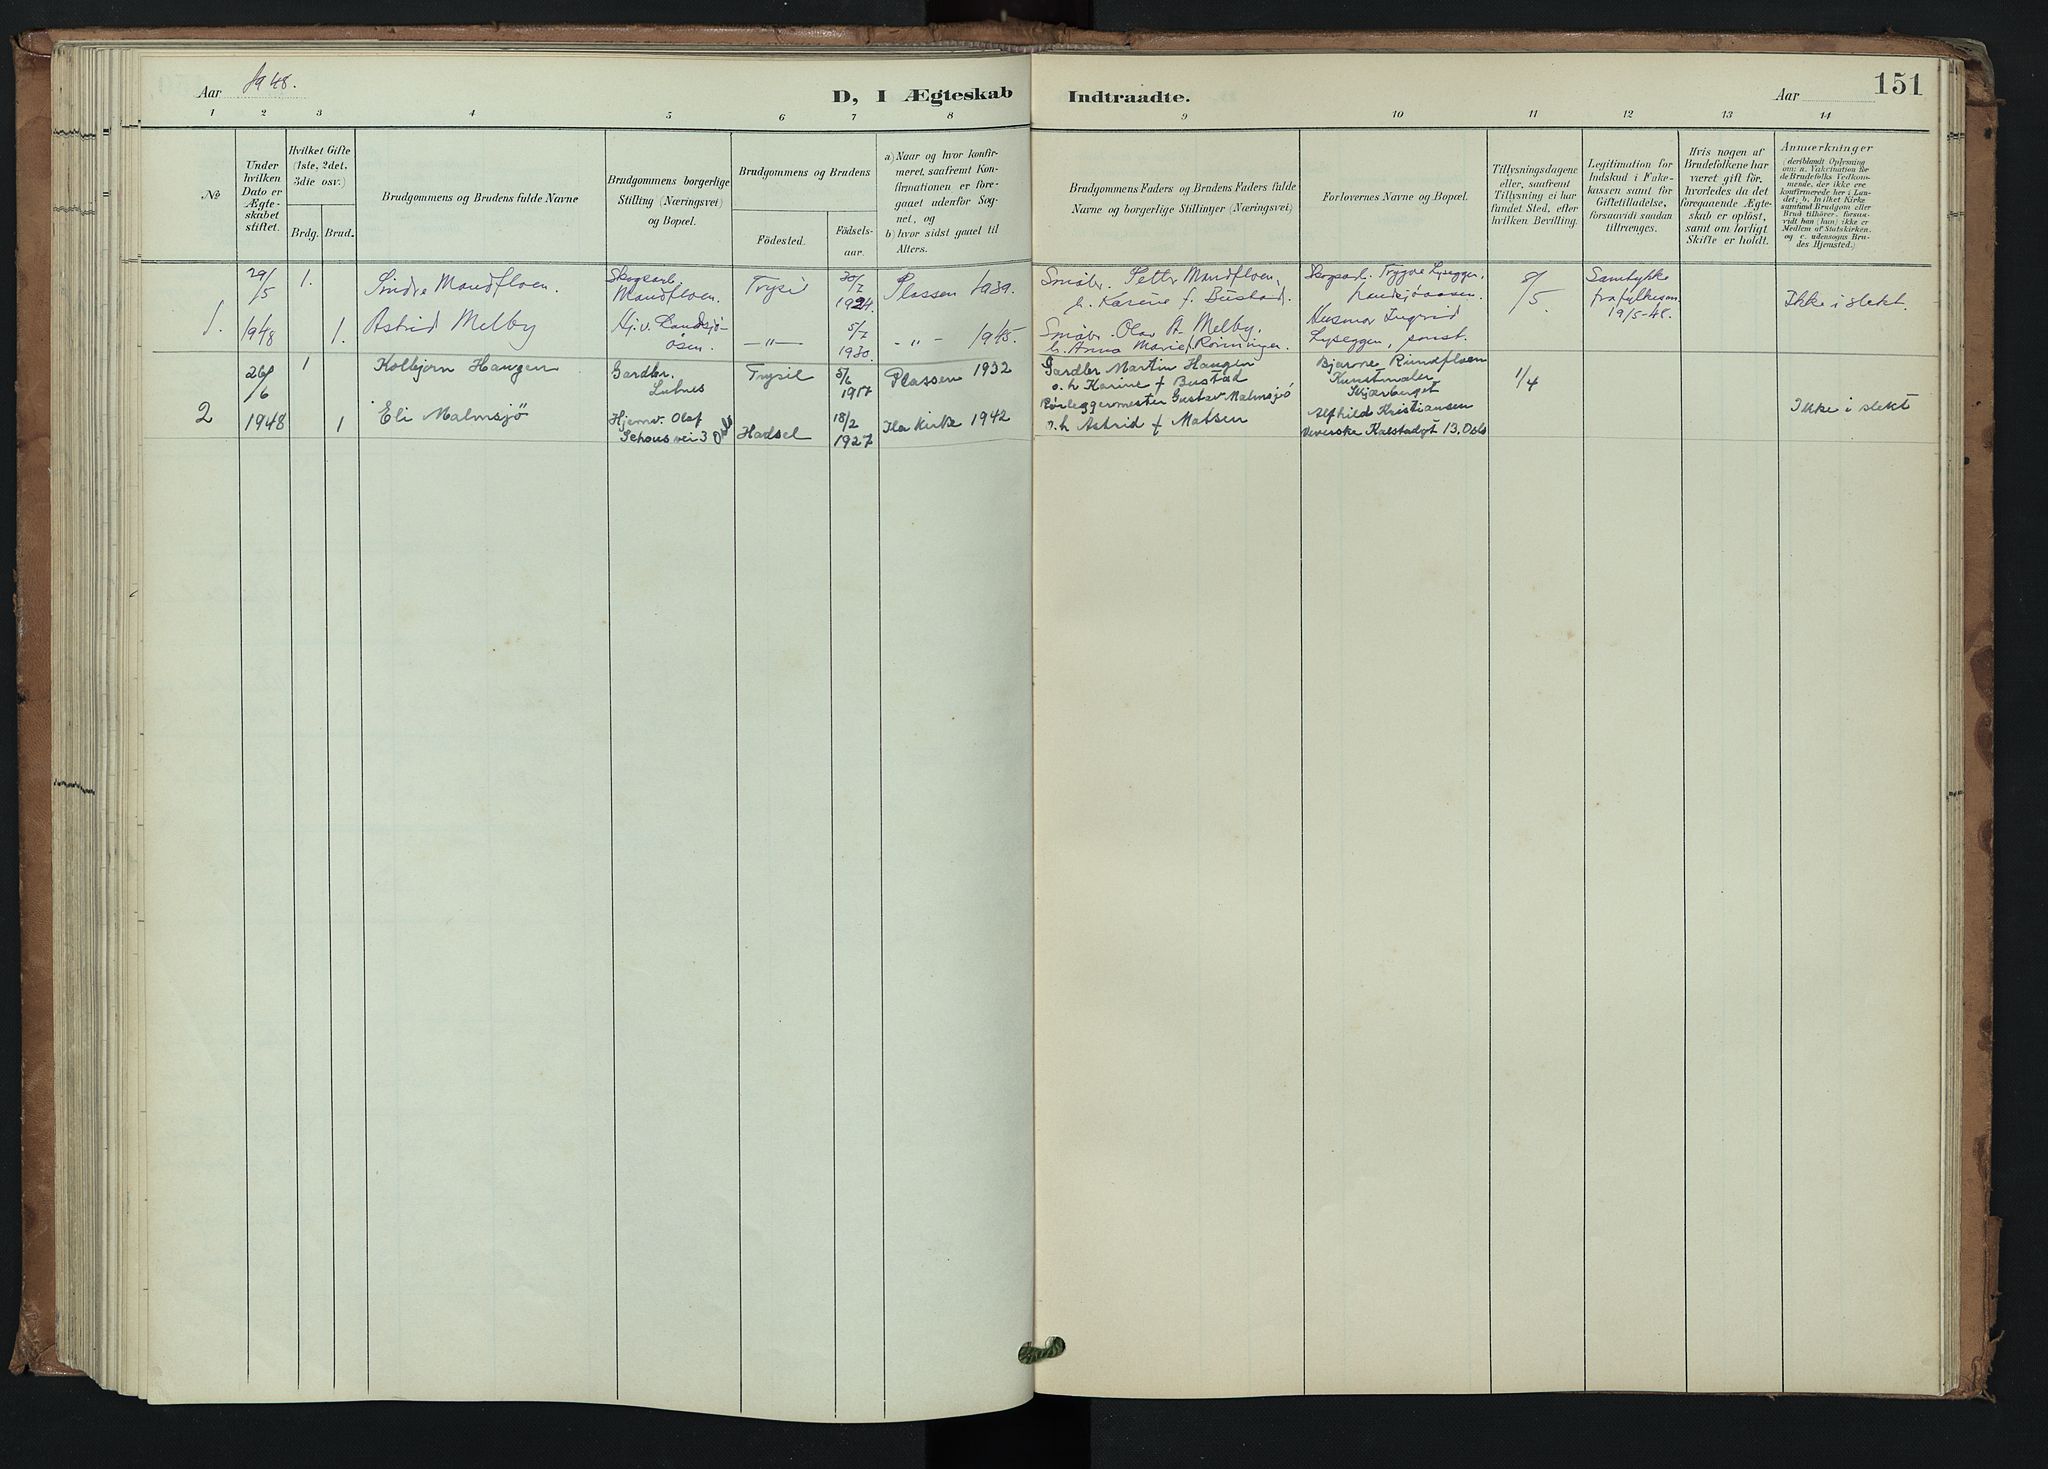 Aar 1948.
D, I Ægteskab Indtraadte.
Aar
151
1 2 3 4 5 6 7 8 9 10 11 12 13 14
No
Under hvilken Dato er Ægteskabet stiftet.
Hvilket Gifte (1ste, 2det, 3die osv.)
Brdg. Brud.
Brudgommens og Brudens fulde Navne
Brudgommens borgerlige Stilling (Næringsvei) og Bopæl.
Brudgommens og Brudens
Födested.
Födsels-aar.
a) Naar og hvor konfirmeret, saafremt Konfirmationen er foregaaet udenfor Sognet, og
b) hvor sidst gaaet til Alters.
Brudgommens Faders og Brudens Faders fulde Navne og borgerlige Stillinger (Næringsvei)
Forlovernes Navne og Bopæl.
Tillysningsdagene eller, saafremt Tillysning ei har fundet Sted, efter hvilken Bevilling.
Legitimation for Indskud i Enkekassen samt for Giftetilladelse, forsaavidt saadan tiltrænges.
Hvis nogen af Brudefolkene har været gift för, hvorledes da det foregaaende Ægteskab er oplöst, samt om lovligt Skifte er holdt.
Anmærkninger
(deriblandt Oplysning om: a. Vakcination för de Brudefolks Vedkommende, der ikke ere konfirmerede her i Landet; b. hvilket Kirkesamfund Brudgom eller Brud tilhörer, forsaavidt han (hun) ikke er Medlem af Statskirken, og c. udensogns Brudes Hjemsted.)
1.
29/5 1948
1.
Sindre Mandfloen.
Skogsarb. Mandfloen.
Trysil
30/7 1924.
Plassen 1939.
Småbr. Petter Mandfloen, h. Karine f. Bustad.
Skogsarb. Trygve Lyseggen,
8/5
Samtykke fra fylkesm. 19/5-48.
Ikke i slekt.
1.
Astrid Melby
Hj.v. Landsjöåsen.
— " —
5/7 1930.
- " - 1945.
Småbr. Olav A. Melby. h. Anna Marie f. Rönningen.
Husmor Ingrid Lyseggen, samst.
2
26/6 1948
1
Kolbjörn Haugen
Gardbr. Lutnes
Trysil
5/6 1917
Plassen 1932
Gardbr Martin Haugen o.h Karine f Bustad
Bjarne Rundfloen Kunstmaler Skjærberget
1/4
1
Eli Malmsjö
Hjemv. Olaf Schous vei 3 Oslo
Hadsel
18/2 1927
Ila Kirke 1942
Rörleggermester Gustav Malmsjö o.h Astrid f Matsen
Alfhild Kristiansen Veverske Kalstadgt 13, Oslo
Ikke i slekt